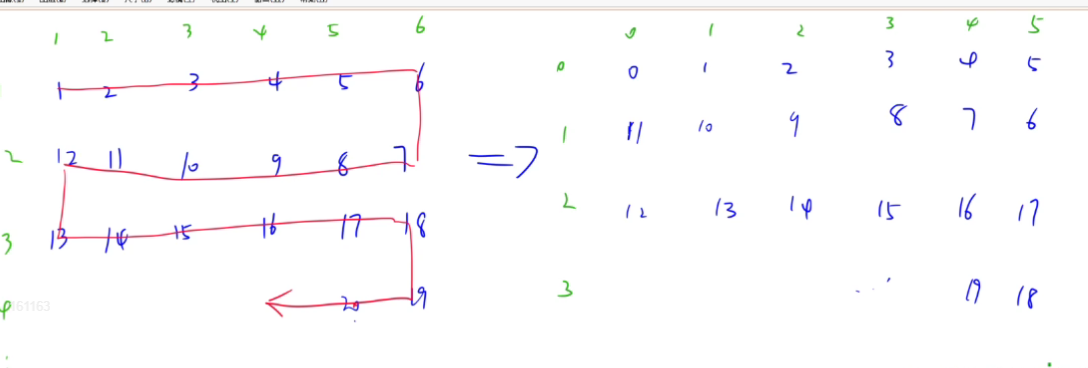 1 2 3 4 5 6
1 2 3 4 5 6
2 12 11 10 9 8 7
3 13 14 15 16 17 18
4 20 19
61163
=>
0 1 2 3 4 5
0 0 1 2 3 4 5
1 11 10 9 8 7 6
2 12 13 14 15 16 17
3 ... 19 18